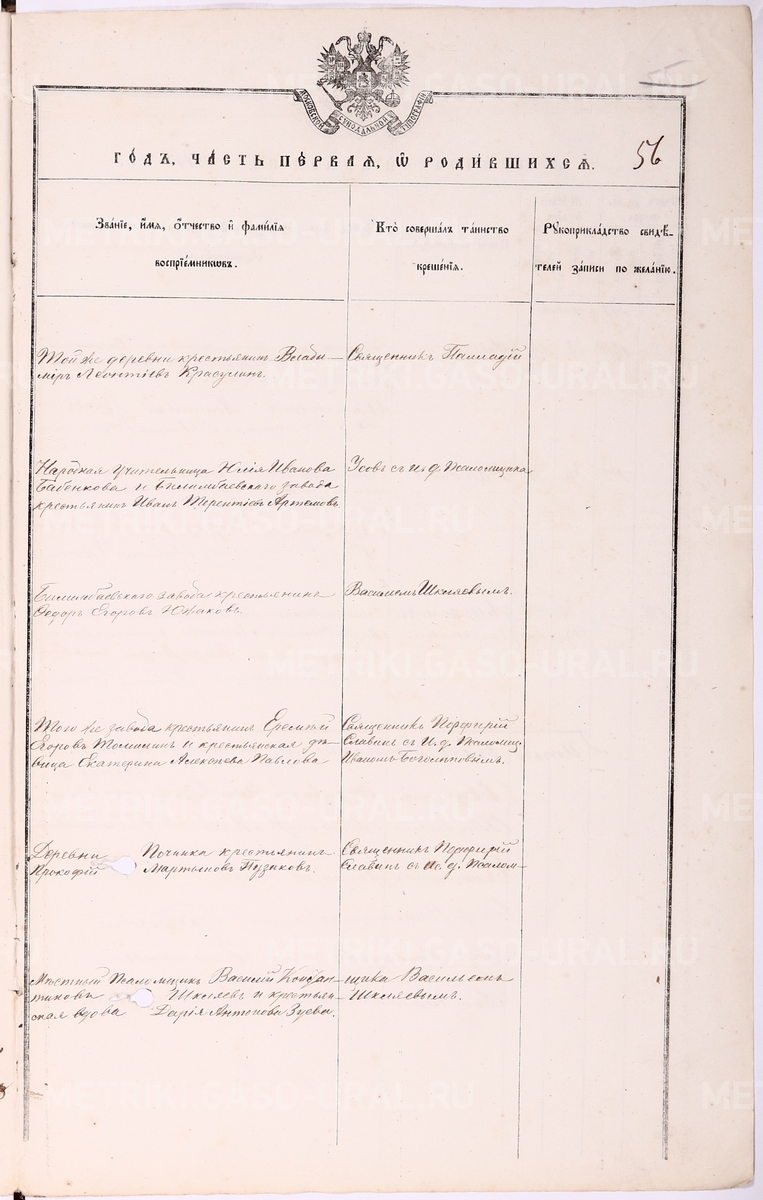 МОСКОВСКОЙ СѴНОДАЛЬНОЙ ТИПОГРАФІИ
56
ГОДЪ, ЧАСТЬ ПЕРВАЯ, Ѡ РОДИВШИХСЯ.
Званіе, имя, отчество и фамилія
воспріемниковъ.
Кто совершалъ таинство
крещенія.
Рукоприкладство свидѣ-
телей записи по желанію.
Той же деревни крестьянинъ Влади-
міръ Леонтіевъ Красулинъ.
Священникъ Палладій
Народная учительница Юлія Иванова
Бабенкова и Билимбаевскаго завода
крестьянинъ Иванъ Терентіевъ Артемовъ
Усовъ съ и. д. Псаломщика
Билимбаевскаго завода крестьянинъ
Ѳедоръ Егоровъ Южаковъ.
Василіемъ Шкляевымъ.
Того же завода крестьянинъ Еремѣй
Егоровъ Томилинъ и крестьянская дѣ-
вица Екатерина Алексѣева Павлова
Священникъ Порфирій
Славинъ съ и. д. Псаломщ.
Иваномъ Боголѣповымъ.
Деревни Починка крестьянинъ
Прокофій Мартыновъ Пузиковъ.
Священникъ Порфирій
Славинъ съ и. д. Псалом-
Мѣстный Псаломщикъ Василій
Шкляевъ и крестьян-
ская вдова Дарія Антонова Зуева.
щика Василіемъ
Шкляевымъ.
METRIKI.GASO-URAL.RU